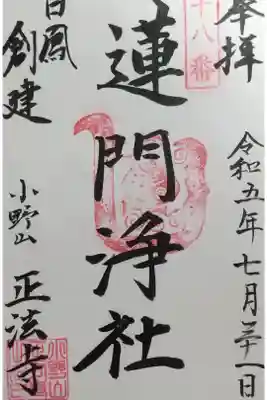 奉拝
十八番
令和五年七月三十一日
蓮門浄社
白鳳
創建
小野山
正法寺